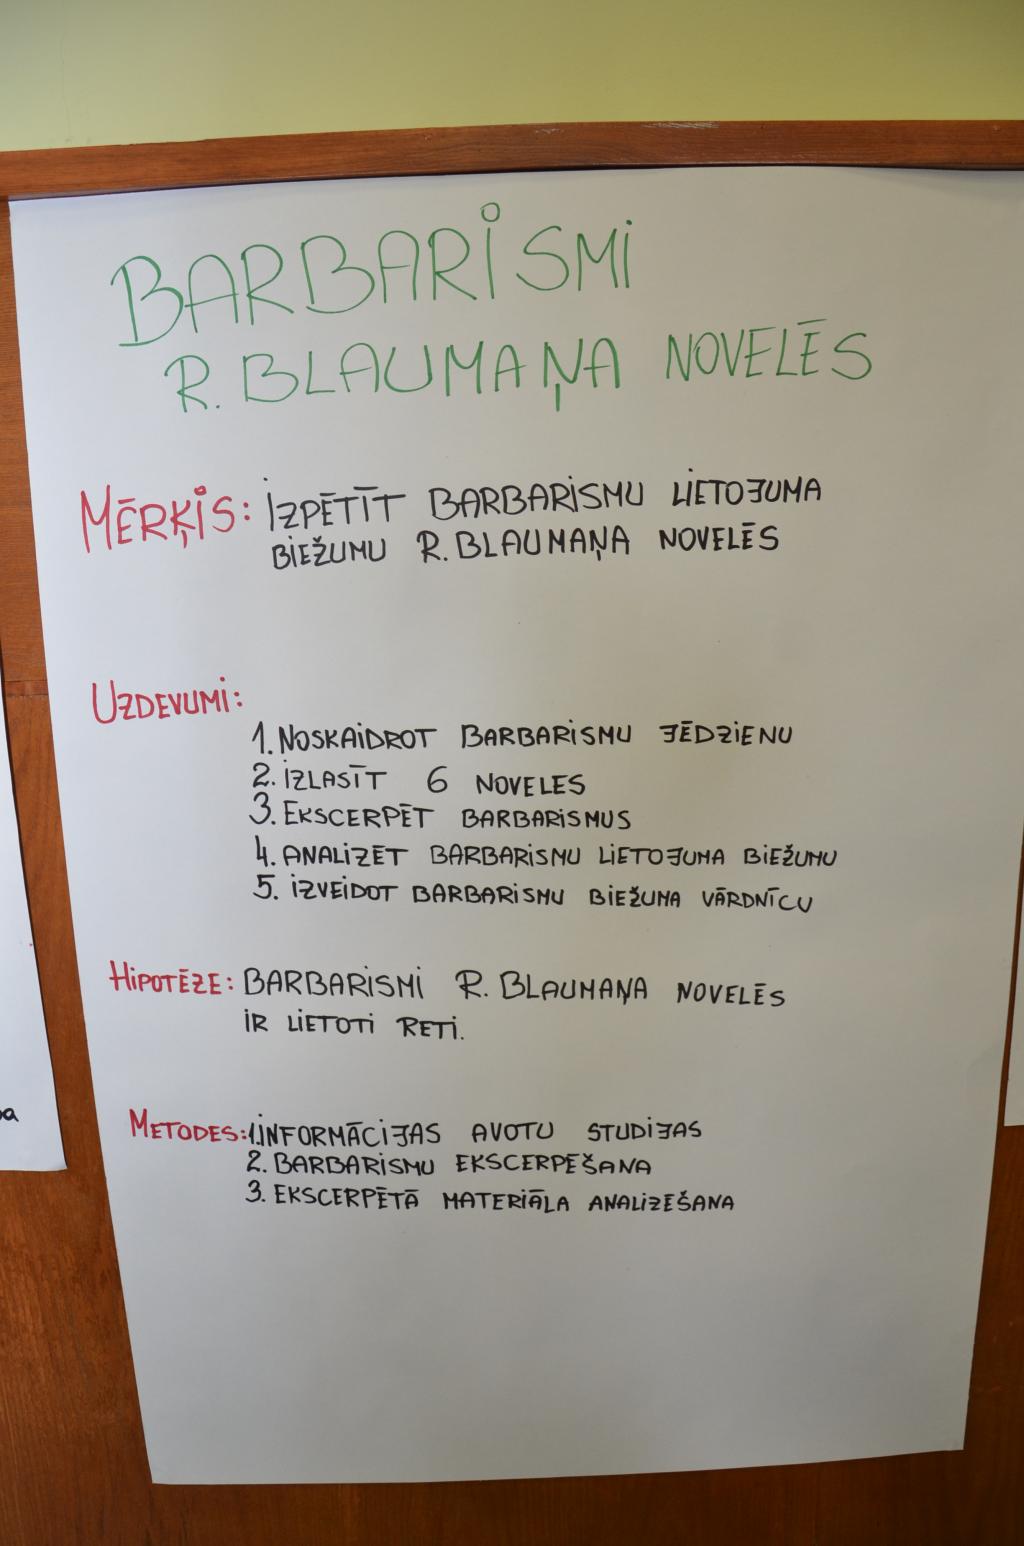 BARBARISMI
R. BLAUMAŅA NOVELĒS
MĒRĶIS: IZPĒTĪT BARBARISMU LIETOJUMA
BIEŽUMU R. BLAUMAŅA NOVELĒS
UZDEVUMI:
1. NOSKAIDROT BARBARISMU JĒDZIENU
2. IZLASĪT 6 NOVELES
3. EKSCERPĒT BARBARISMUS
4. ANALIZĒT BARBARISMU LIETOJUMA BIEŽUMU
5. IZVEIDOT BARBARISMU BIEŽUMA VĀRDNĪCU
HIPOTĒZE: BARBARISMI R. BLAUMAŅA NOVELĒS
IR LIETOTI RETI.
METODES: 1. INFORMĀCIJAS AVOTU STUDIJAS
2. BARBARISMU EKSCERPĒŠANA
3. EKSCERPĒTĀ MATERIĀLA ANALIZĒŠANA